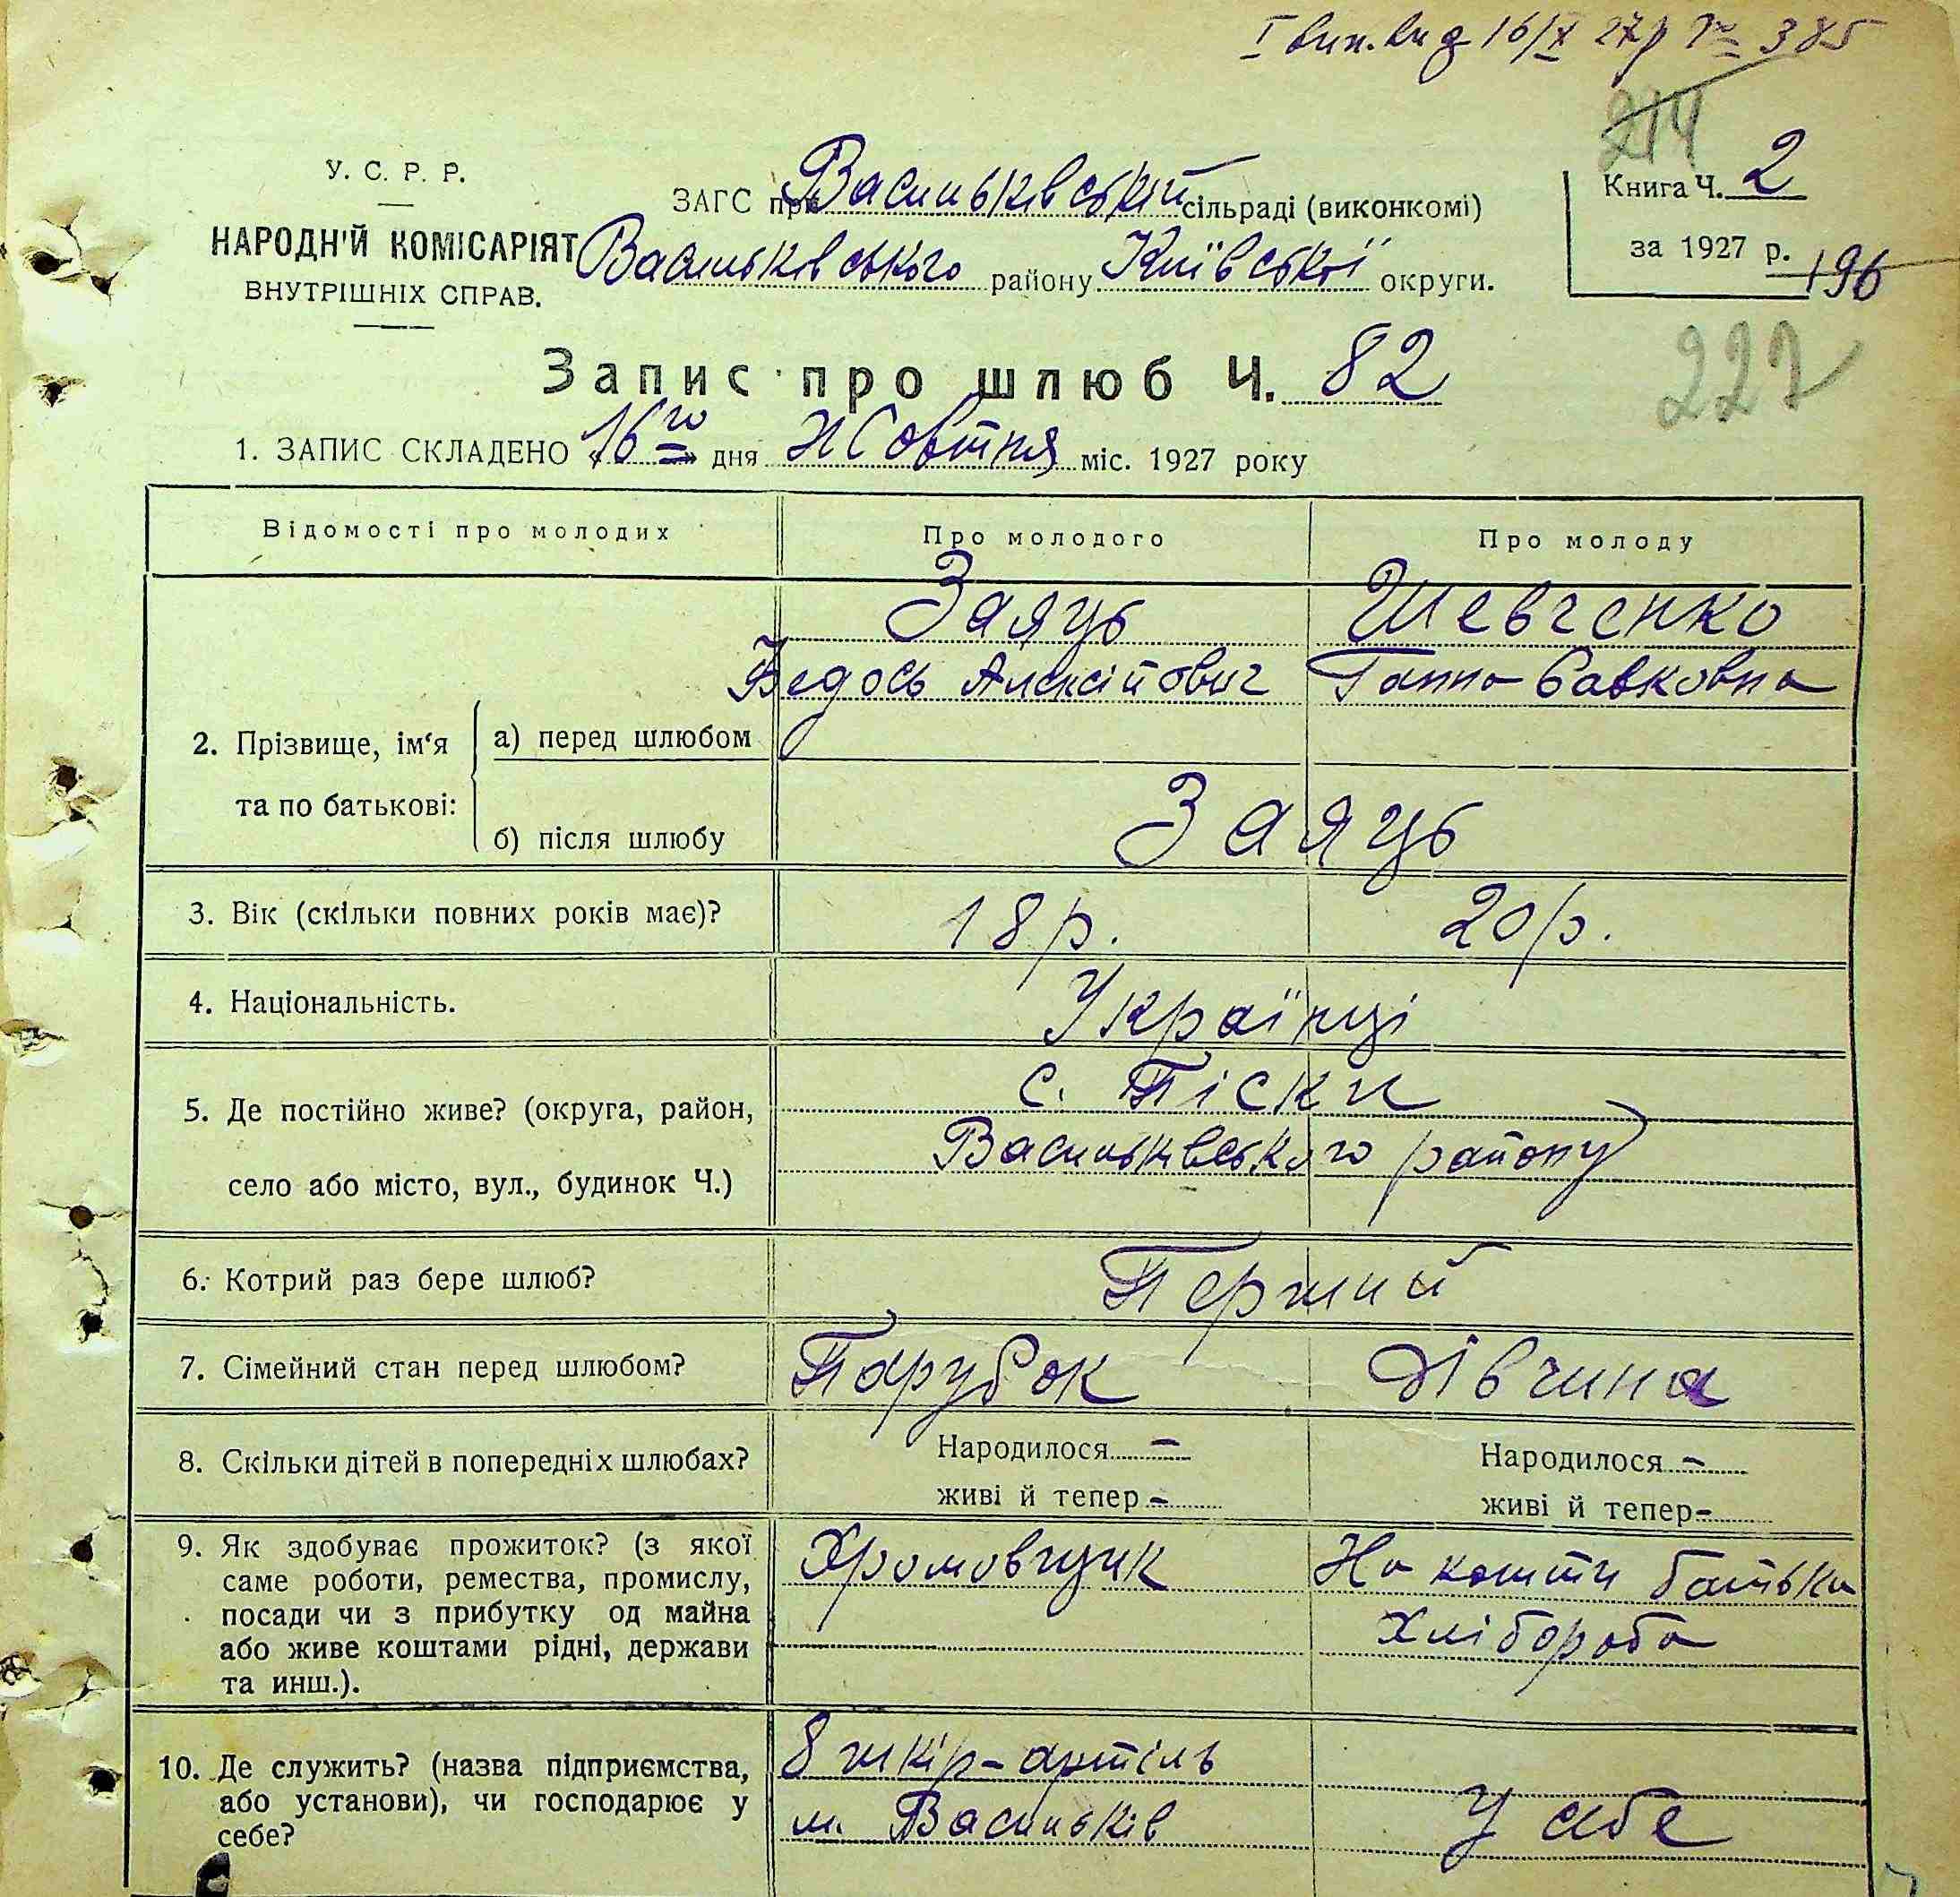 І вип. вид 16/X 27р № 385
214
У. С. Р. Р.
НАРОДН'Й КОМІСАРІЯТ
ВНУТРІШНІХ СПРАВ.
ЗАГС при Васильківській сільраді (виконкомі)
Васильківського району Київської округи.
Книга Ч. 2
за 1927 р.
196
222
Запис про шлюб Ч. 82
1. ЗАПИС СКЛАДЕНО «16го» дня Жовтня міс. 1927 року
Відомості про молодих
Про молодого
Про молоду
2. Прізвище, ім‘я та по батькові:
а) перед шлюбом
Заяць
Федось Алексійович
Шевченко
Ганна Савковна
б) після шлюбу
Заяць
3. Вік (скільки повних років має)?
18 р.
20 р.
4. Національність.
Українці
5. Де постійно живе? (округа, район,
село або місто, вул., будинок Ч.)
с. Піски
Васильківського району
6. Котрий раз бере шлюб?
Перший
7. Сімейний стан перед шлюбом?
Парубок
Дівчина
8. Скільки дітей в попередніх шлюбах?
Народилося –
живі й тепер –
Народилося –
живі й тепер –
9. Як здобуває прожиток? (з якої
саме роботи, ремества, промислу,
посади чи з прибутку од майна
або живе коштами рідні, держави
та инш.).
Хромовщик
На кошти батька
Хлібороба
10. Де служить? (назва підприємства,
або установи), чи господарює у
себе?
8 шкір-артіль
м. Васильків
У себе